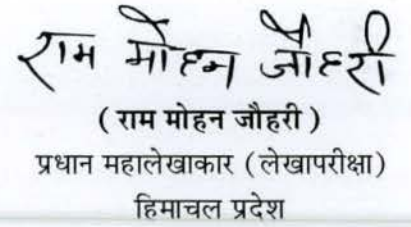 राम मोहन जौहरी
( राम मोहन जौहरी )
प्रधान महालेखाकार ( लेखापरीक्षा)
हिमाचल प्रदेश